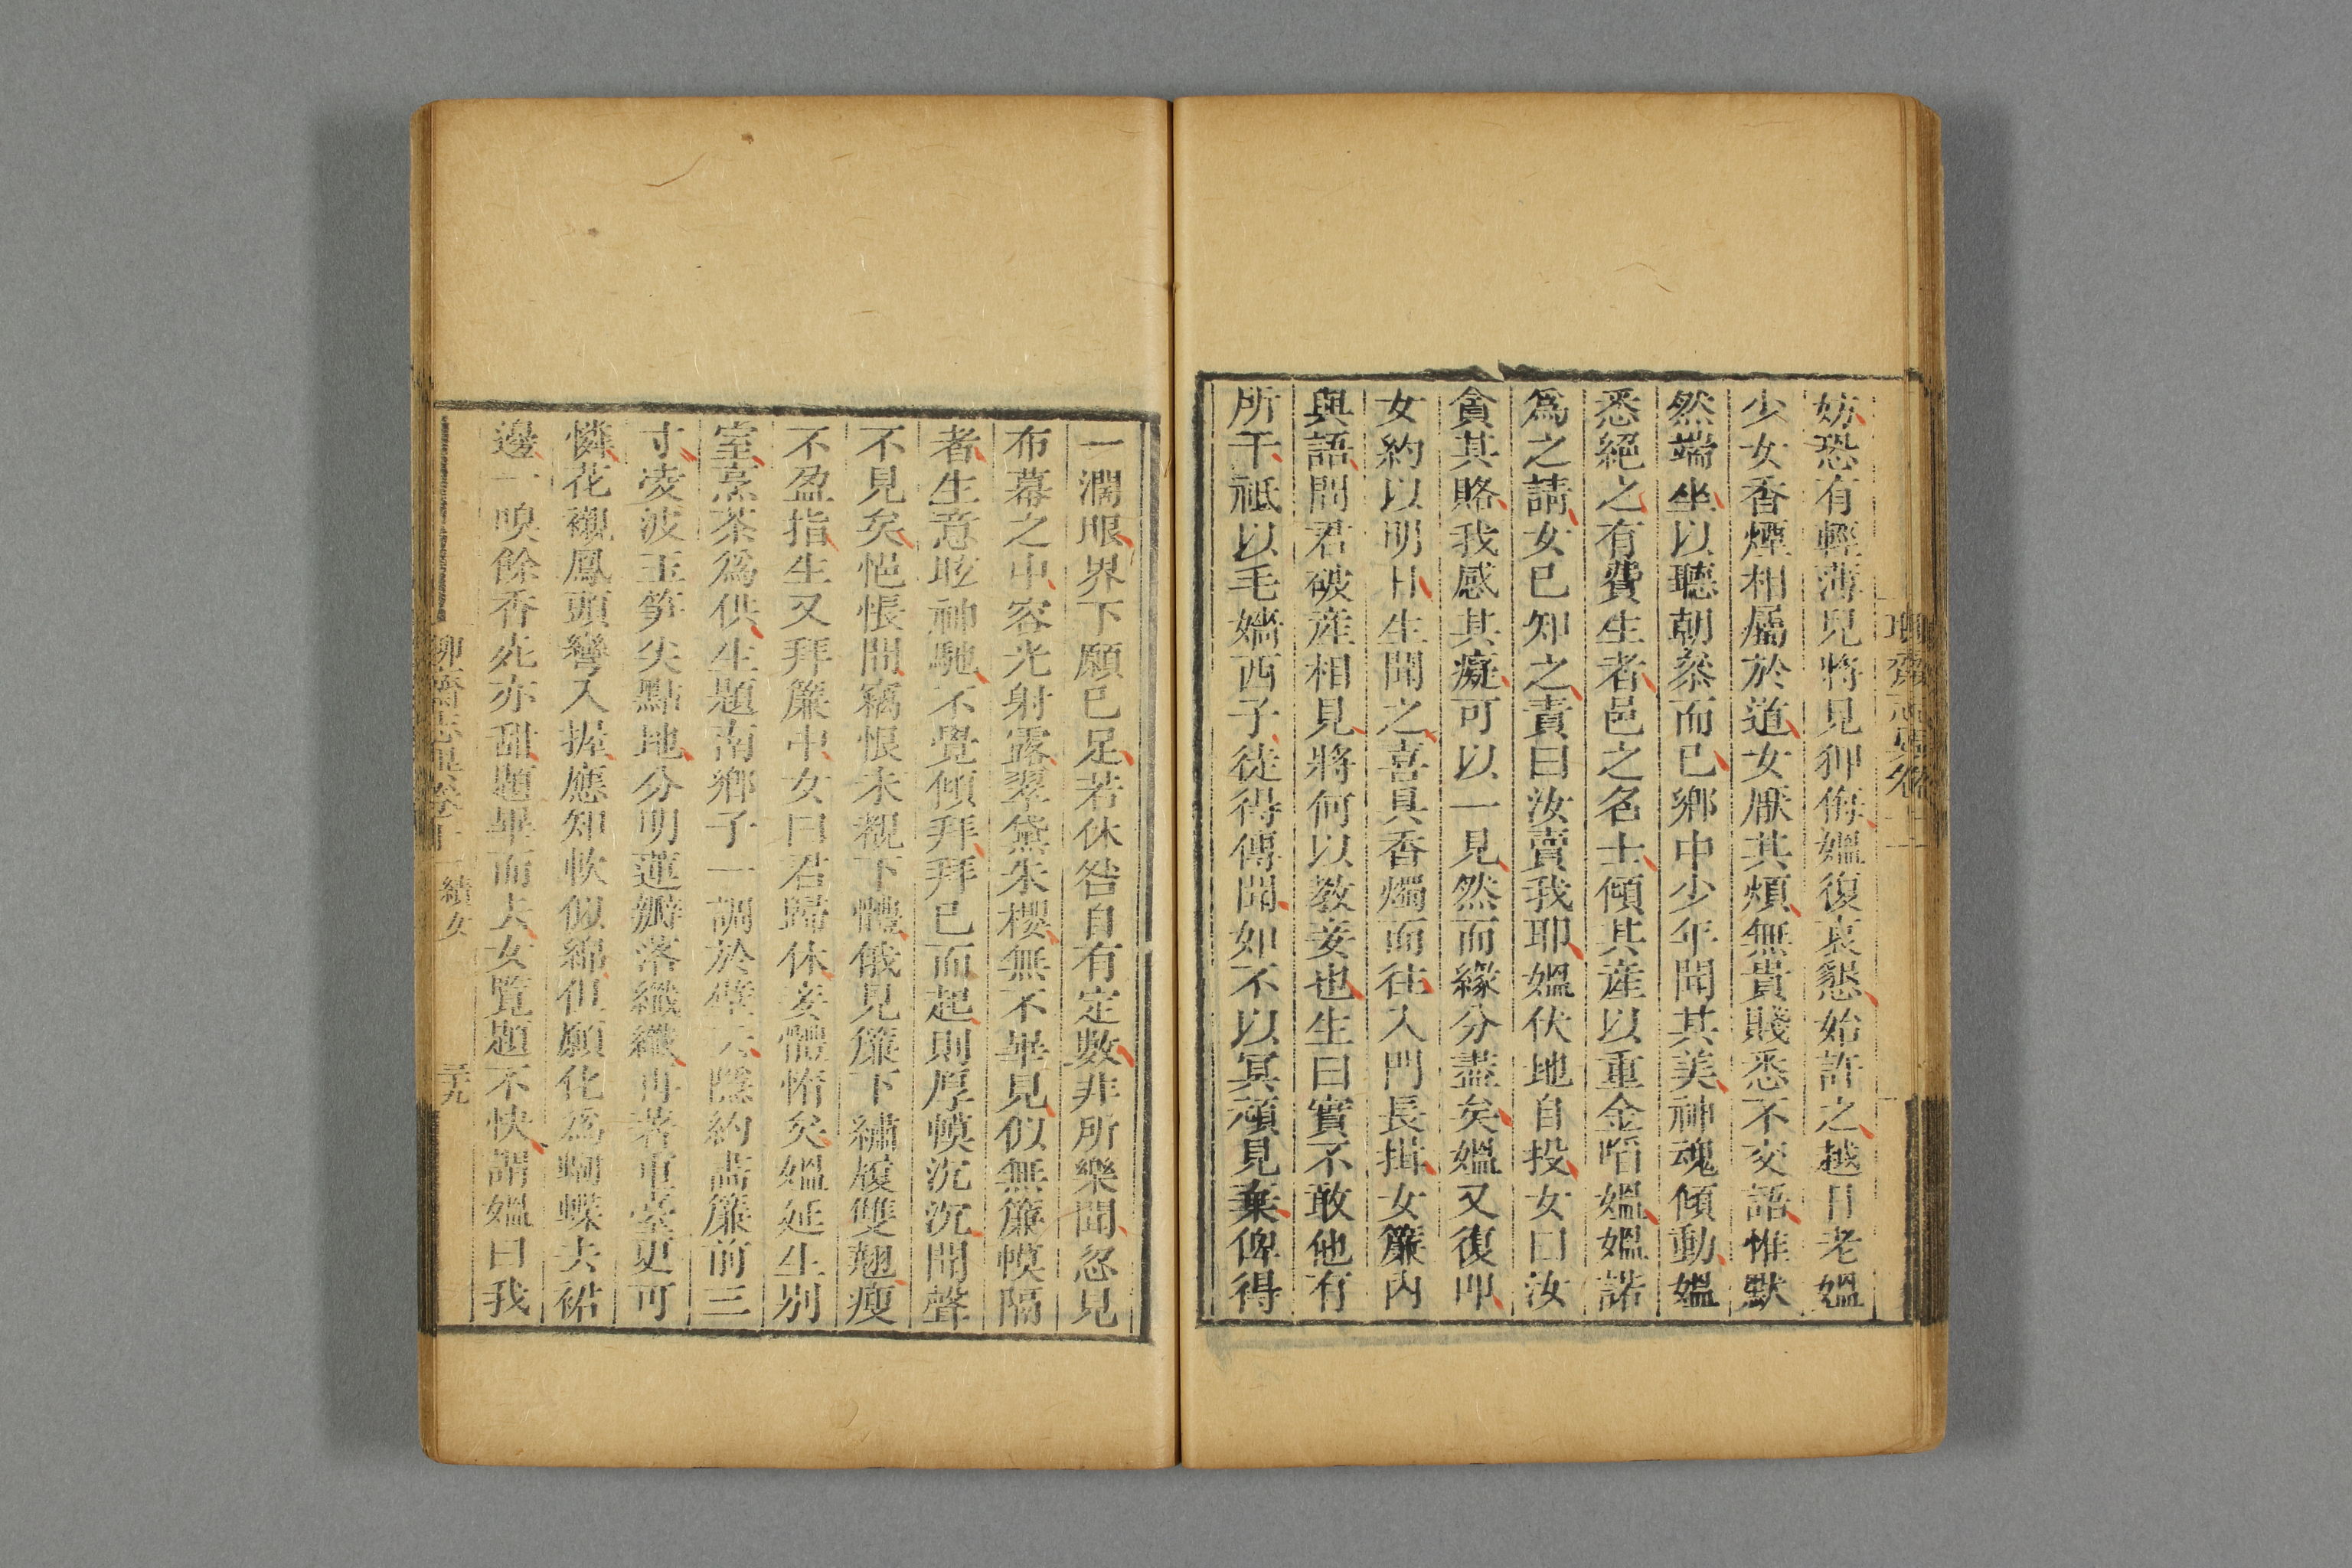 妨恐有輕薄兒將見狎侮媼復哀懇始許之越日老媼
少女香煙相屬於道女厭其煩無貴賤悉不交語惟默
然端坐以聽朝叅而已鄉中少年聞其美神魂傾動媼
悉絕之有費生者邑之名士傾其產以重金啗媼媼諾
爲之請女已知之責曰汝賣我耶媼伏地自投女曰汝
貪其賂我感其癡可以一見然而緣分盡矣媼又復叩
女約以明日生聞之喜具香燭而往入門長揖女簾內
與語問君破產相見將何以教妾也生曰實不敢他有
所干祗以毛嬙西子徒得傳聞如不以冥頑見棄俾得
一濶眼界下願已足若休咎自有定數非所樂聞忽見
布幕之中容光射露翠黛朱櫻無不畢見似無簾幙隔
者生意眩神馳不覺傾拜拜已而起則厚幙沉沉聞聲
不見矣悒悵間竊恨未覩下體俄見簾下繡履雙翹瘦
不盈指生又拜簾中女曰君歸休妾體惰矣媼延生別
室烹茶爲供生題南鄉子一調於壁云隱約畫簾前三
寸凌波玉笋尖點地分明蓮瓣落纖纖再着重臺更可
憐花襯鳳頭彎入握應知軟似綿但願化爲蝴蝶去裙
邊一嗅餘香死亦甜題畢而去女覽題不快謂媼曰我
聊齋志異卷十一 績女 三九